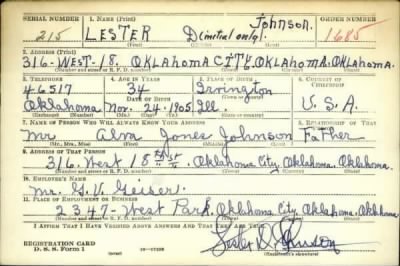 SERIAL NUMBER 1. NAME (Print) ORDER NUMBER
215 LESTER D (initial only) Johnson. 1685
(First) (Middle) (Last)
2. ADDRESS (Print)
316-WEST-18. OKLAHOMA CITY. OKLAHOMA. OKLAHOMA.
(Number and street or R. F. D. number) (Town) (County) (State)
3. TELEPHONE 4. AGE IN YEARS 5. PLACE OF BIRTH 6. COUNTRY OF CITIZENSHIP
46517 34 Irvington
DATE OF BIRTH
Oklahoma Nov. 24. 1905 Ill. U.S.A
(Exchange) (Number) (Mo.) (Day) (Yr.) (State or country)
7. NAME OF PERSON WHO WILL ALWAYS KNOW YOUR ADDRESS 8. RELATIONSHIP OF THAT PERSON
Mr Alva Jones Johnson Father
(Mr., Mrs., Miss) (First) (Middle) (Last)
9. ADDRESS OF THAT PERSON
316. West 18th St. Oklahoma City. Oklahoma. Oklahoma.
(Number and street or R. F. D. number) (Town) (County) (State)
10. EMPLOYER'S NAME
Mr. G. V. Geiser.
11. PLACE OF EMPLOYMENT OR BUSINESS
2347-West Park. Oklahoma City. Oklahoma. Oklahoma
(Number and street or R. F. D. number) (Town) (County) (State)
I AFFIRM THAT I HAVE VERIFIED ABOVE ANSWERS AND THAT THEY ARE TRUE.
REGISTRATION CARD
D. S. S. Form 1
Lester D. Johnson